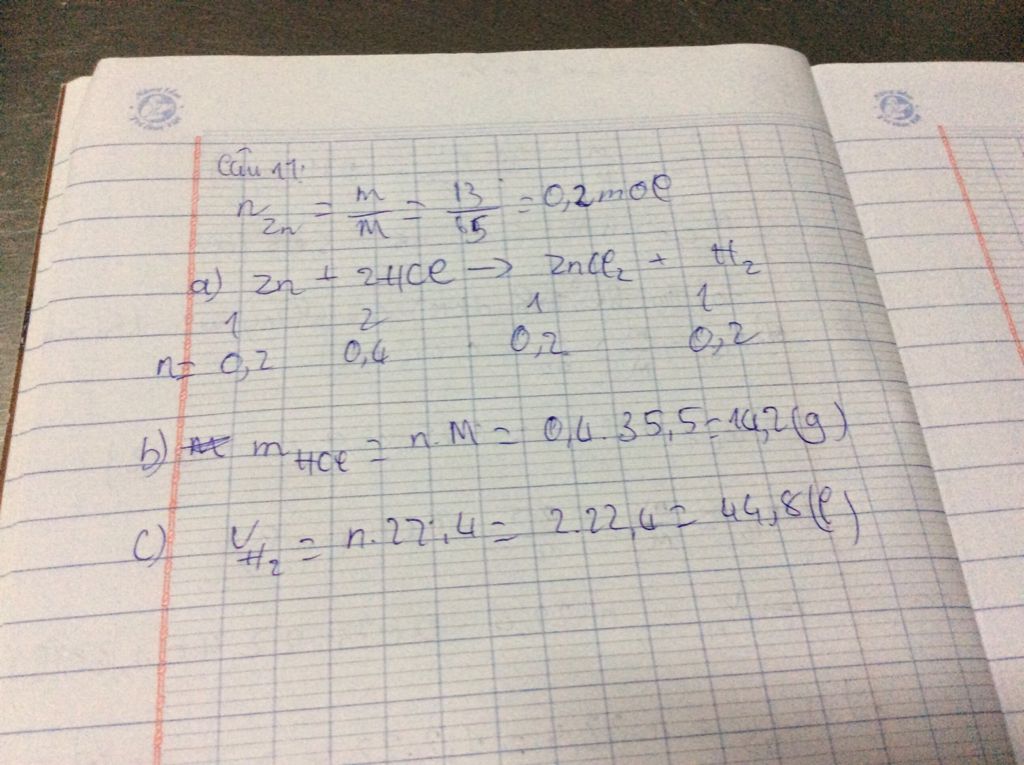 Câu 11.
n Zn = m/M = 13/65 = 0,2 mol
a) Zn + 2HCl → ZnCl₂ + H₂
1 2 1 1
n = 0,2 0,4 0,2 0,2
b) m HCl = n.M = 0,4.35,5 = 14,2(g)
c) V H₂ = n.22,4 = 2.22,4 = 44,8(l)